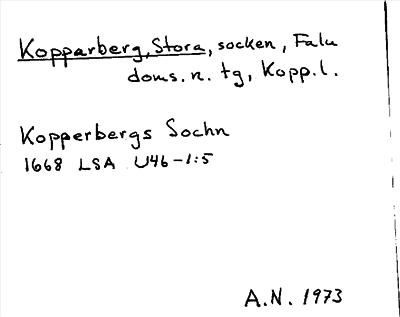 Kopparberg, Stora, socken, Falu
doms. n. tg, Kopp. l.
Kopperbergs Sochn
1668 LSA U46-1:5
A.N. 1973